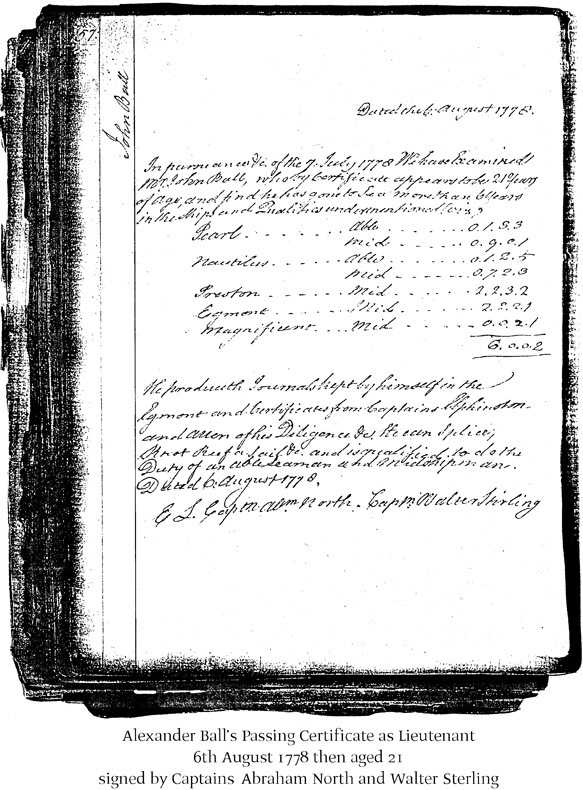 57.
John Ball
Dated the 6. August 1778.
In pursuance &c. of the 7. July 1778 We have Examined
Mr. John Ball, who by Certificate appears to be 21 Years
of Age, and find he has gone to Sea more than 6 Years
in the Ships and Qualities undermentioned (viz.)
Pearl - - - - - Able - - - - - - 0.1.3.3
Mid - - - - - - 0.9.0.1
Nautilus - - - - Able - - - - - - 0.1.2.5
Mid - - - - - - 0.7.2.3
Preston - - - - - Mid - - - - - - 2.2.3.2
Egmont - - - - - Mid - - - - - - 2.2.2.1
Magnificent - - - Mid - - - - - - 0.0.2.1
6.0.0.2
He produceth Journals kept by himself in the
Egmont and Certificates from Captains Elphinston
and Allen of his Diligence &c. He can Splice,
Knot Reef a Sail &c. and is qualified to do the
Duty of an able Seaman and Midshipman.
Dated 6. August 1778.
E L. Captn. Abm North. Captn. Walter Stirling
Alexander Ball's Passing Certificate as Lieutenant
6th August 1778 then aged 21
signed by Captains Abraham North and Walter Sterling